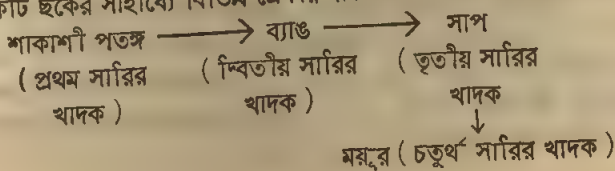 ছকের সাহায্যে
শাকাশী পতঙ্গ ⟶ ব্যাঙ ⟶ সাপ
( প্রথম সারির ( দ্বিতীয় সারির ( তৃতীয় সারির
খাদক ) খাদক ) খাদক
↓
ময়ূর ( চতুর্থ সারির খাদক )